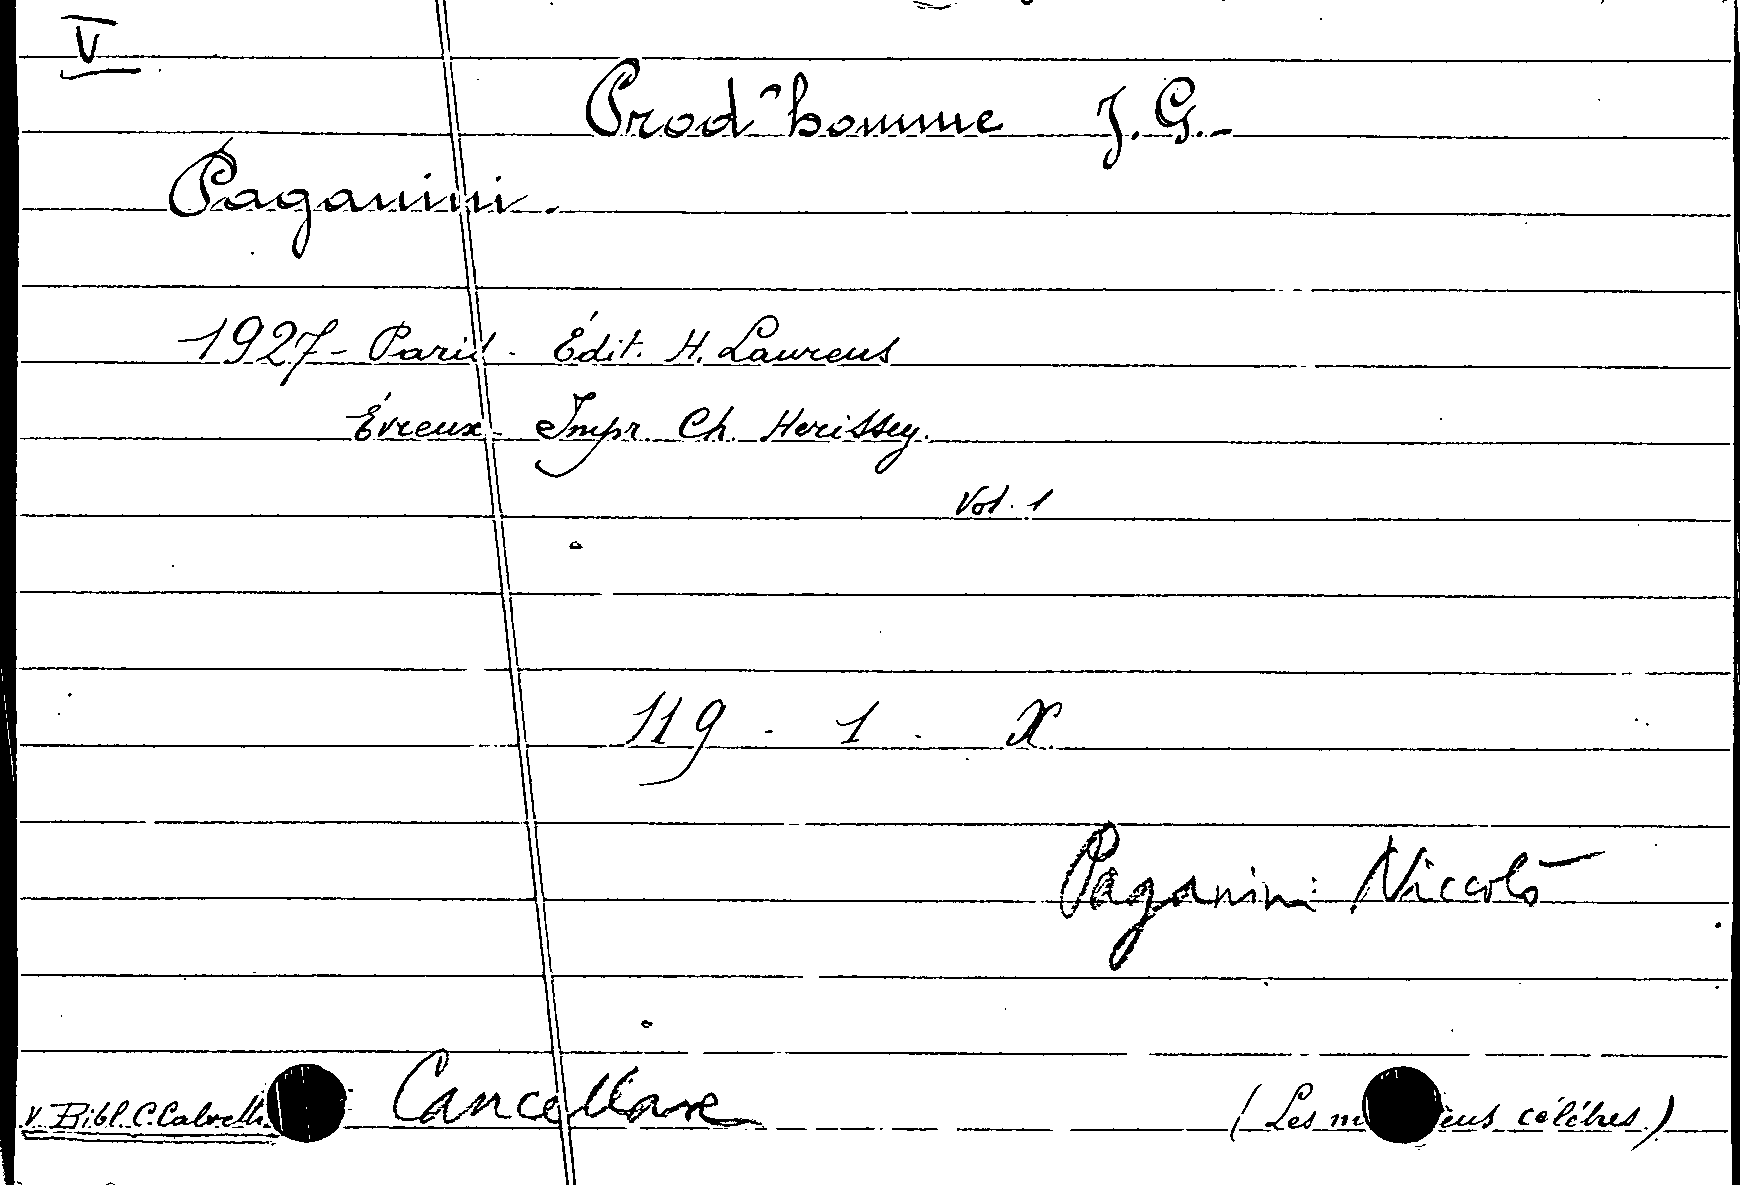 V
Prod'homme J. G.-
Paganini.
1927 - Paris - Édit. H. Laurens
Évreux - Impr Ch. Herissey.
Vol. 1
119 - 1 - X
Paganini Niccolò
V. Bibl. C. Cancellare (Les célèbres)